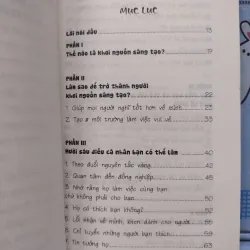 Mục Lục
Lời nói đầu 13
PHẦN I
Thế nào là khơi nguồn sáng tạo? 17
PHẦN II
Làm sao để trở thành người
khơi nguồn sáng tạo? 22
1. Giúp mọi người nghĩ tốt hơn về mình
2. Tạo ra môi trường làm việc vui vẻ
PHẦN III
Mười sáu điều cá nhân bạn có thể làm 40
1. Theo đuổi nguyên tắc vàng 42
2. Quan tâm đến đồng nghiệp
3. Nhớ rằng họ làm việc cùng bạn
chứ không phải cho bạn 50
4. Họ có thích bạn không?
5. Lỗi nhận về mình, khen dành cho người
6. Chỉ tuyển những người bạn thích
7. Tin tưởng họ